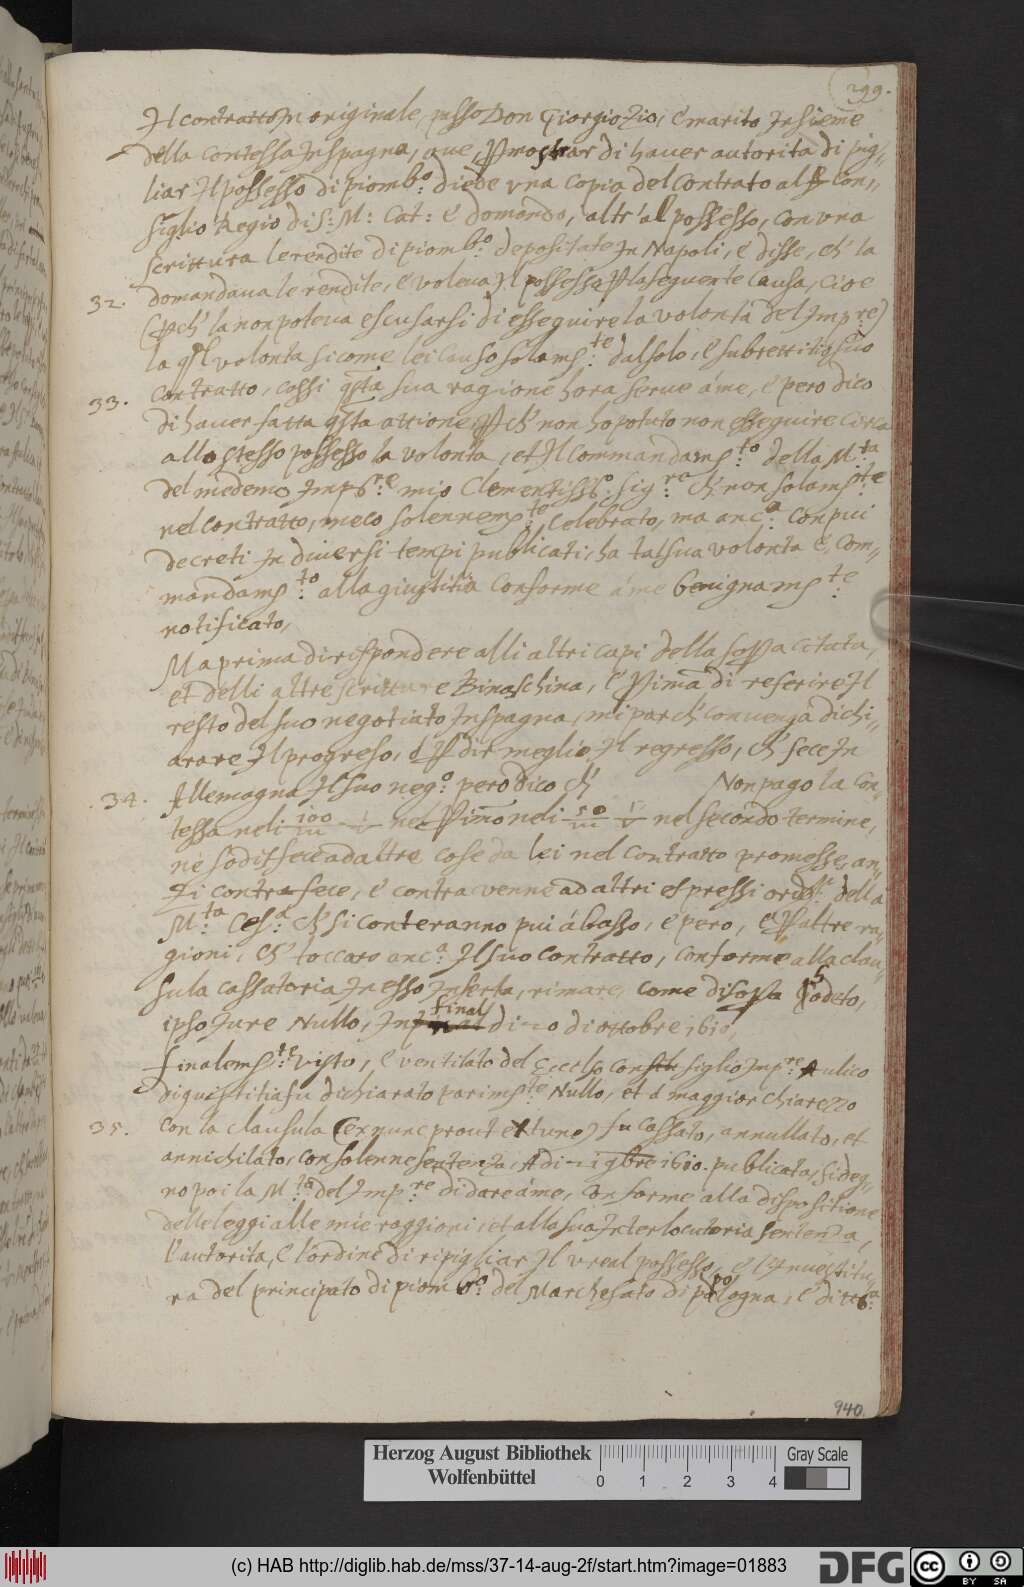 299.
Il contratto In originale, pesso Don Giorgio Zio, é marito Insieme
della Contessa In spagna, que, P mostrar di hauer autorita di pig-
liar Il possesso di piomb:o diede vna copia del Contrato al Con-
siglio Regio di S: M: Cat: é domando, altr'al possesso, con vna
scrittura le rendite di piomb:o depositate In Napoli, é disse, ch' la
32. domandaua le rendite, é voleua Il possesso P la seguente Causa, Cioe
(Pch' la non poteua escusarsi di esseguire la volontà del Imp:re)
la qsl volonta sicome lei causo solams:te dal solo, é subrettitio suo
33. contratto, cossi qsta sua ragione hora serue á me, é pero dico
di hauer fatta qsta attione, Pch' non ho potuto non esseguire circa
allo stesso possesso la volonta, et Il Commandams:to della M:ta
del medemo Imp:re mio Clementiss:o sig:re ch' non solams:te
nel contratto, meco solennems:te Celebrato, ma anc:a con piu
decreti In diuersi tempi publicati, ha tal sua volonta é, Com-
mandams:to alla giustitia Conforme á me benignams:te
notificato,
Ma prima di rispondere alli altri capi della soPa citata,
et delli altre scritture Binaschina, é Pima di referire Il
resto del suo negotiato In spagna, mi par ch' conuenga dichi-
arare Il progreso, ó P dir meglio Il regresso, ch' fece In
34. Allemagna Il suo neg:o pero dico ch' Non pago la Con-
tessa neli 100/m nel Pimo neli 50/m nel secondo termine,
ne sodisfece ad altre cose da lei nel Contratto promesse, an-
zi contrafece, é contra venne ad altri espressi ord:i della
M:ta Ces:a ch' si conteranno piu á basso, é pero, é P altre ra-
gioni, ch' toccaro anc:a Il suo Contratto, conforme alla clau-
sula cassatoria In esso Inserta, rimase, come di soPa s'odeto,
ipso Iure Nullo, In final di 20 di ottobre 1610,
finalems:te visto, é ventilato del Eccelso Consiglio Imp:re Aulico
di giustitia fu dichiarato parims:te Nullo, et á maggior chiarezzo
35. con la clausula (ex nunc prout ex tunc) fu Cassato, annullato, et
annichilato, con solenne sentenza, A di 21 9bre 1610. publicata, si deg-
no poi la M:ta del Imp:re di dare á me, Conforme alla dispositione
delle leggi alle mie raggioni, et alla sua Interlocutoria sentenza,
l'autorita, é l'ordine di ripigliar Il vreal possesso, é l'Inuestitu-
ra del principato di piomb:o del Marchesato di populogna, é di tt:a
940.
Herzog August Bibliothek
Wolfenbüttel
0 1 2 3 4
Gray Scale
(c) HAB http://diglib.hab.de/mss/37-14-aug-2f/start.htm?image=01883
DFG
CC BY SA